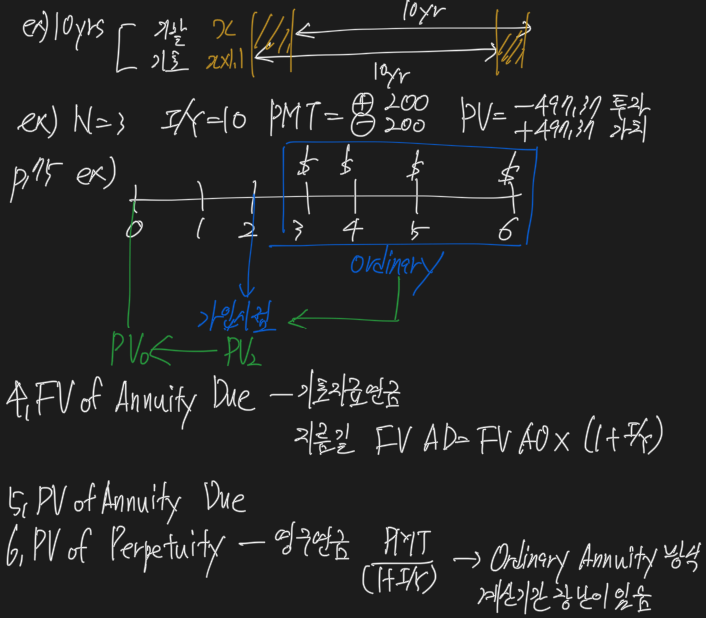 10yr
ex) 10yrs [ 기말 x
기초 x×1.1
10yr
ex) N=3 I/Y=10 PMT= ⊕ 200 PV= -497.37 투자
⊖ 200 +497.37
p.75 ex)
$ $ $ $
0 1 2 3 4 5 6
Ordinary
가입시점
PV₀ ← PV₂
4. FV of Annuity Due - 기초지급연금
지름길 FV AD = FV AO × (1+I/Y)
5. PV of Annuity Due
6. PV of Perpetuity - 영구연금 PMT/(1+I/Y) → Ordinary Annuity 방식
계산기간 장난이 있음